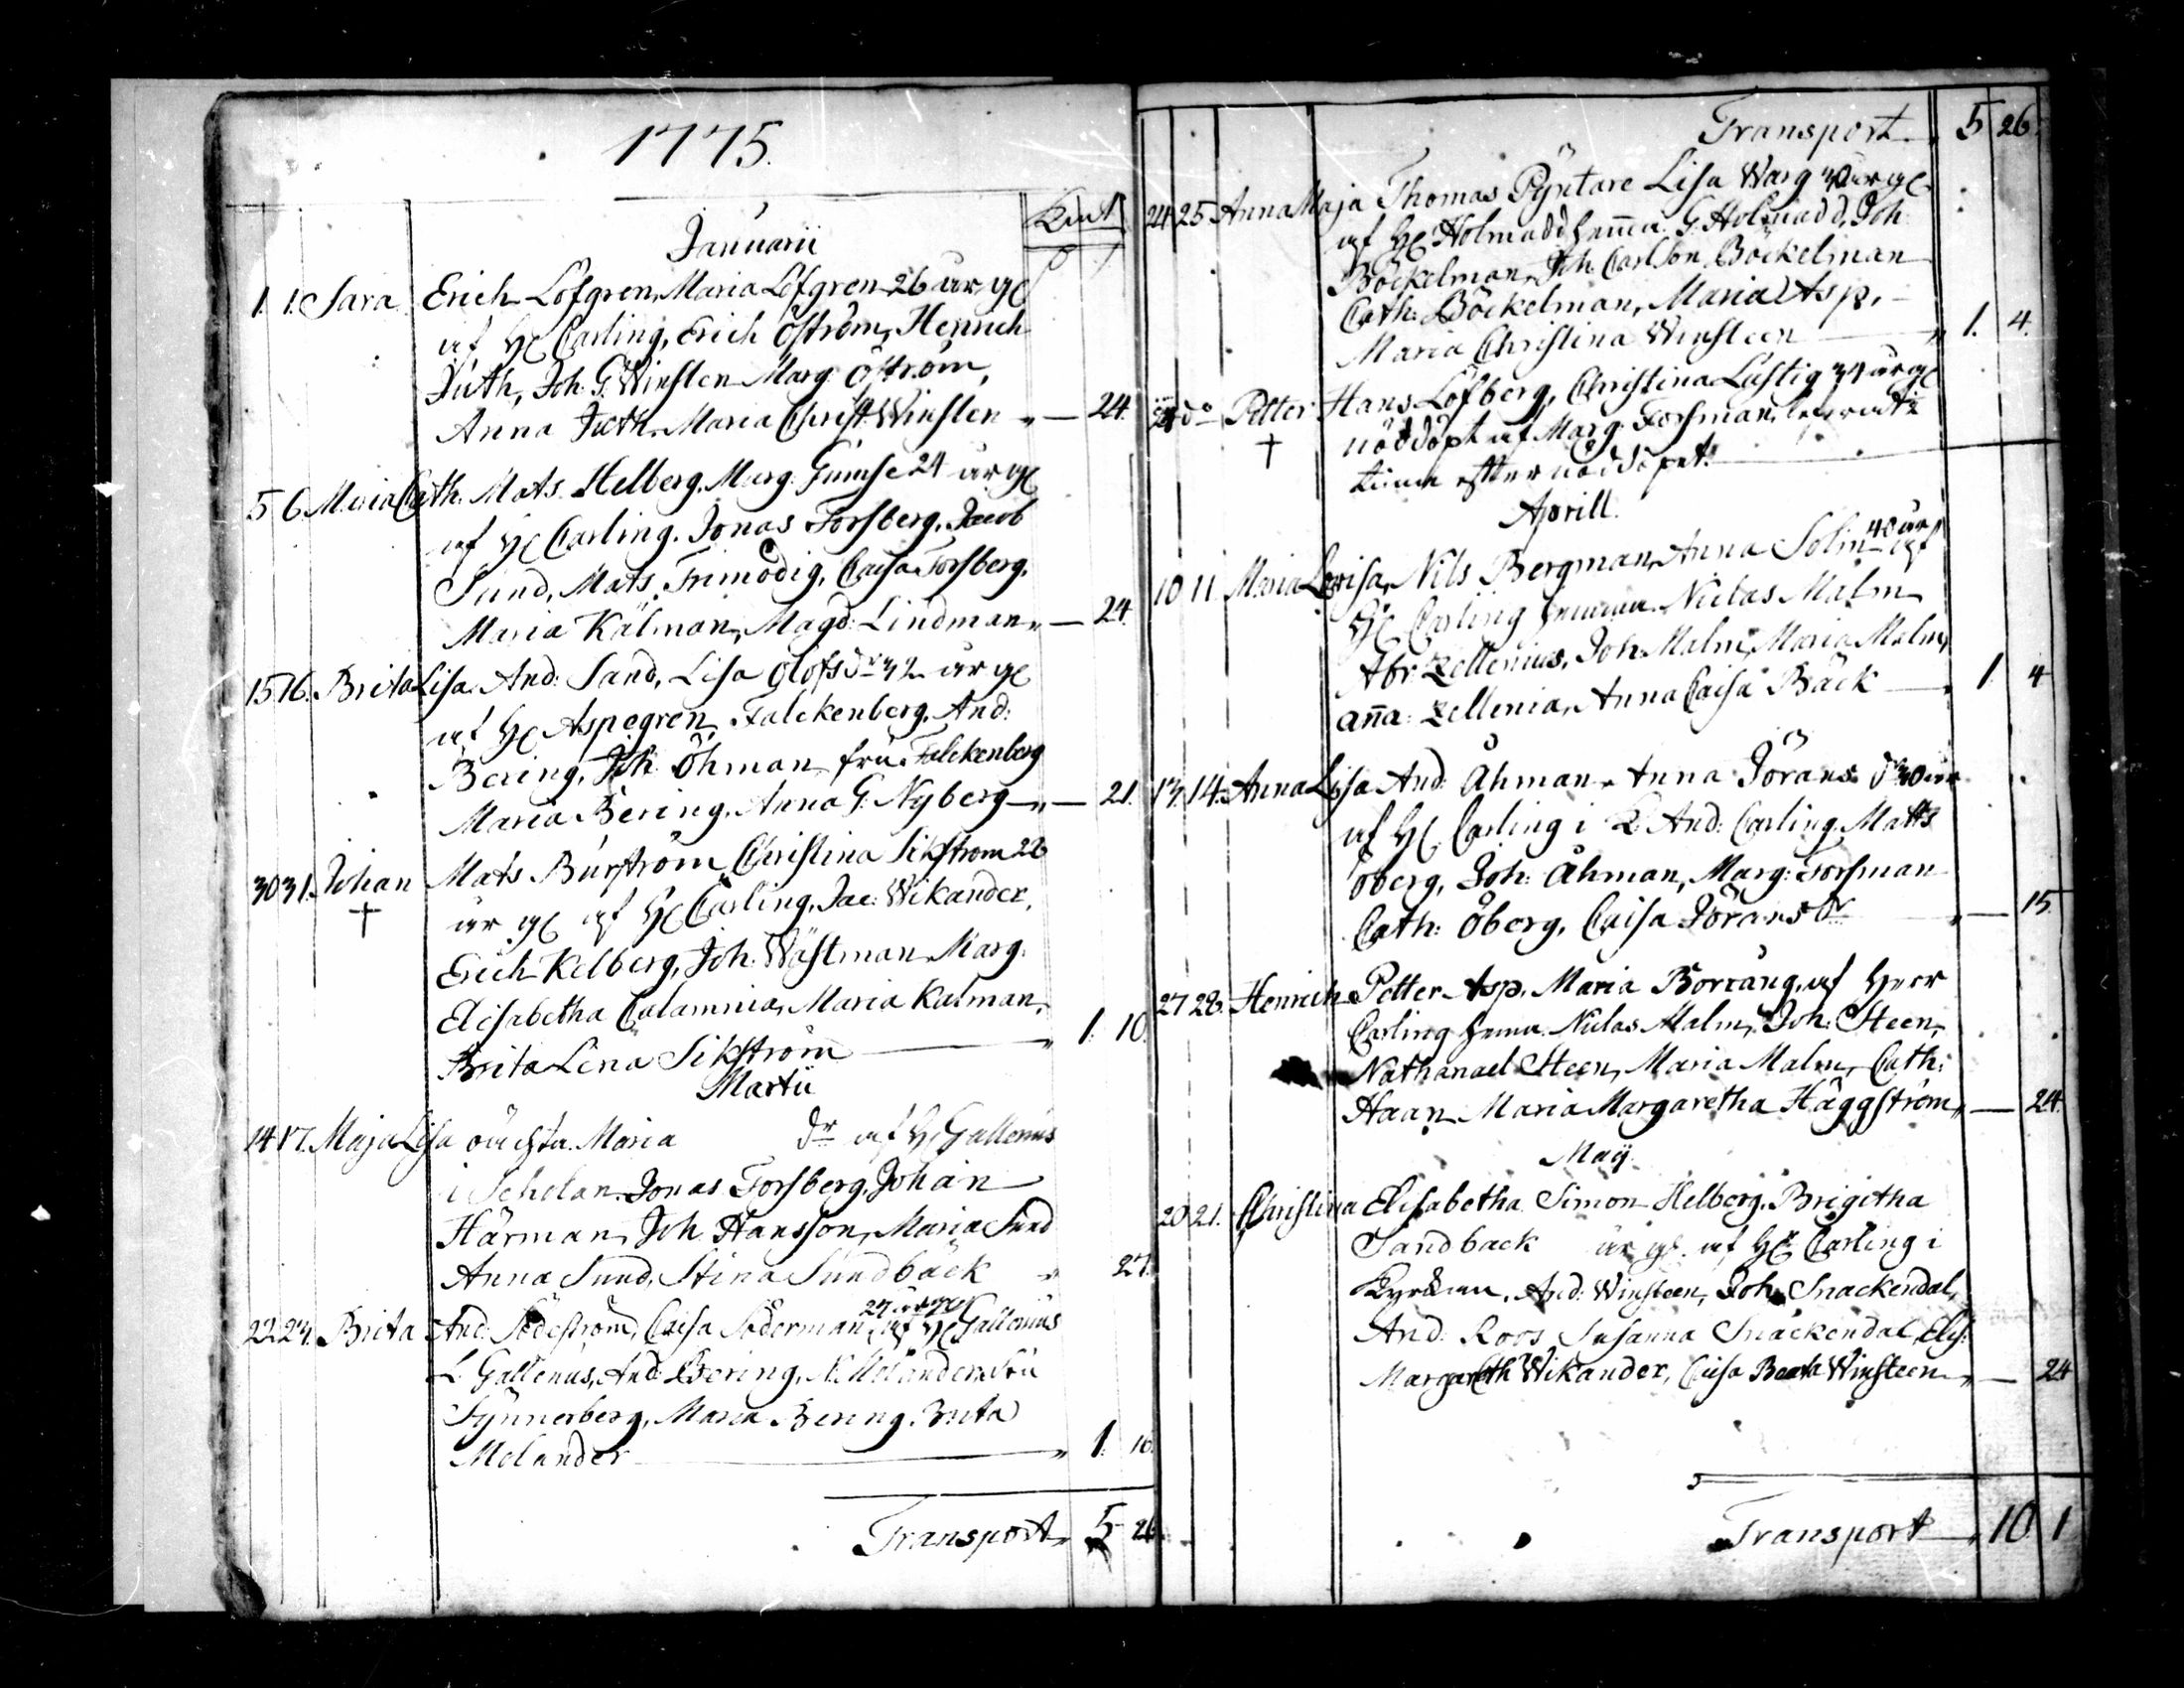 1775.
Januarii
1. 1. Sara Erich Löfgren, Maria Löfgren 26 år gl
af H Carling, Erich Öström, Henrich
Juth, Joh. G. Winsten Marg: Öström,
Anna Juth, Maria Christ: Winsten „ — 24.
5 6. Maria Cath. Mats Helberg, Marg: Gumse 24 år gl
af H Carling. Jonas Forsberg, Jacob
Sund, Mats Frimodig, Caisa Forsberg,
Maria Kälman, Magd: Lindman „ — 24.
15 16. Brita Lisa And: Sand, Lisa Olofs dr 32 år gl
af H Aspegren, Falckenberg, And:
Bering, Joh Öhman, fru Falckenberg
Maria Bering, Anna G: Nyberg „ — 21.
30 31. Johan Mats Burström, Christina Sikström 22
† år gl af H Carling, Jac: Wikander,
Erich Kelberg, Joh: Wästman, Marg.
Elisabetha Calamnia, Maria Kalman,
Brita Lena Sikström „ 1. 10.
Martii
14 17. Maja Lisa oächta. Maria dr af H Gallenius
i Scholan. Jonas Forsberg, Johan
Härman, Joh Hansson, Maria Sund
Anna Sund, Stina Sundbäck „ 27.
22 23. Brita And: Söderström, Caisa Söderman 27 år gl af H Gallenius
L. Gallenius, And: Bering, N. Molander, fru
Synnerberg, Maria Bering, Brita
Molander „ 1. 10.
Transport „ 5 26
Transport 5 26
24 25 Anna Maja Thomas Pyntare Lisa Warg år gl
af H Holmadd hemma. G. Holmadd, Joh:
Böckelman, Joh. Carlson Böckelman
Cath: Böckelman, Maria Asp,
Maria Christina Winsteen „ 1. 4.
do Petter Hans Löfberg, Christina Lustig 37 år gl
† nöddöpt af Marg: Forsman,
efter nöddopet.
Aprill.
10 11 Maria Lovisa, Nils Bergman, Anna Solin 40 år af
H Carling hemma. Niclas Malm
Abr: Zellenius, Joh: Malm, Maria Malm,
Anna: Zellenia, Anna Caisa Bäck „ 1 4
13. 14. Anna Lisa And: Åhman, Anna Jörans dr 30 år
af H Carling i K. And: Carling, Matts
Öberg, Joh: Åhman, Marg: Forsman
Cath: Öberg, Caisa Jörans dr „ — 15.
27 28. Henrich Petter Asp, Maria Borrång, af Herr
Carling hema. Niclas Malm, Joh: Steen,
Nathanael Steen, Maria Malm, Cath:
Haan, Maria Margaretha Häggström „ — 24.
Maij
20 21. Christina Elisabetha Simon Helberg, Brigitha
Sandback år gl. af H Carling i
Kyrckan. And: Winsteen, Joh Snackendal,
And: Roos Susanna Snäckendal, Elis:
Margareth Wikander, Caisa Beata Winsteen „ — 24
Transport „ 10 1